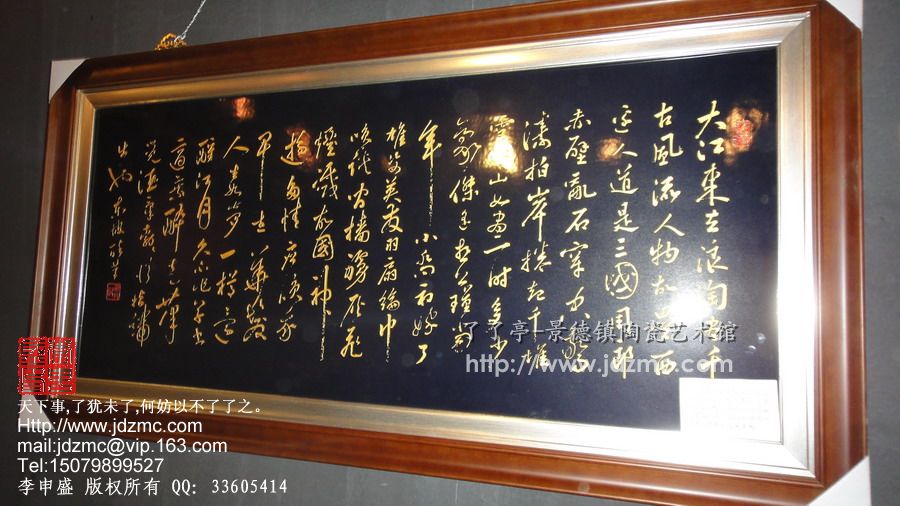 大江東去浪淘盡千
古風流人物故壘西
邊人道是三國周郎
赤壁亂石穿空驚
濤拍岸捲起千堆
雪江山如畫一時多少
豪傑遙想公瑾當
年小喬初嫁了
雄姿英發羽扇綸巾
談笑間檣艣灰飛
煙滅故國神
遊多情應笑我
早生華髮
人生如夢一樽還
酹江月久不作草書
適乘醉走筆
覺酒氣勃勃從指端
出也東坡醉筆
了了亭·景德镇陶瓷艺术馆
http://www.jdzmc.com/
天下事,了犹未了,何妨以不了了之。
Http://www.jdzmc.com
mail:jdzmc@vip.163.com
Tel:15079899527
李申盛 版权所有 QQ: 33605414